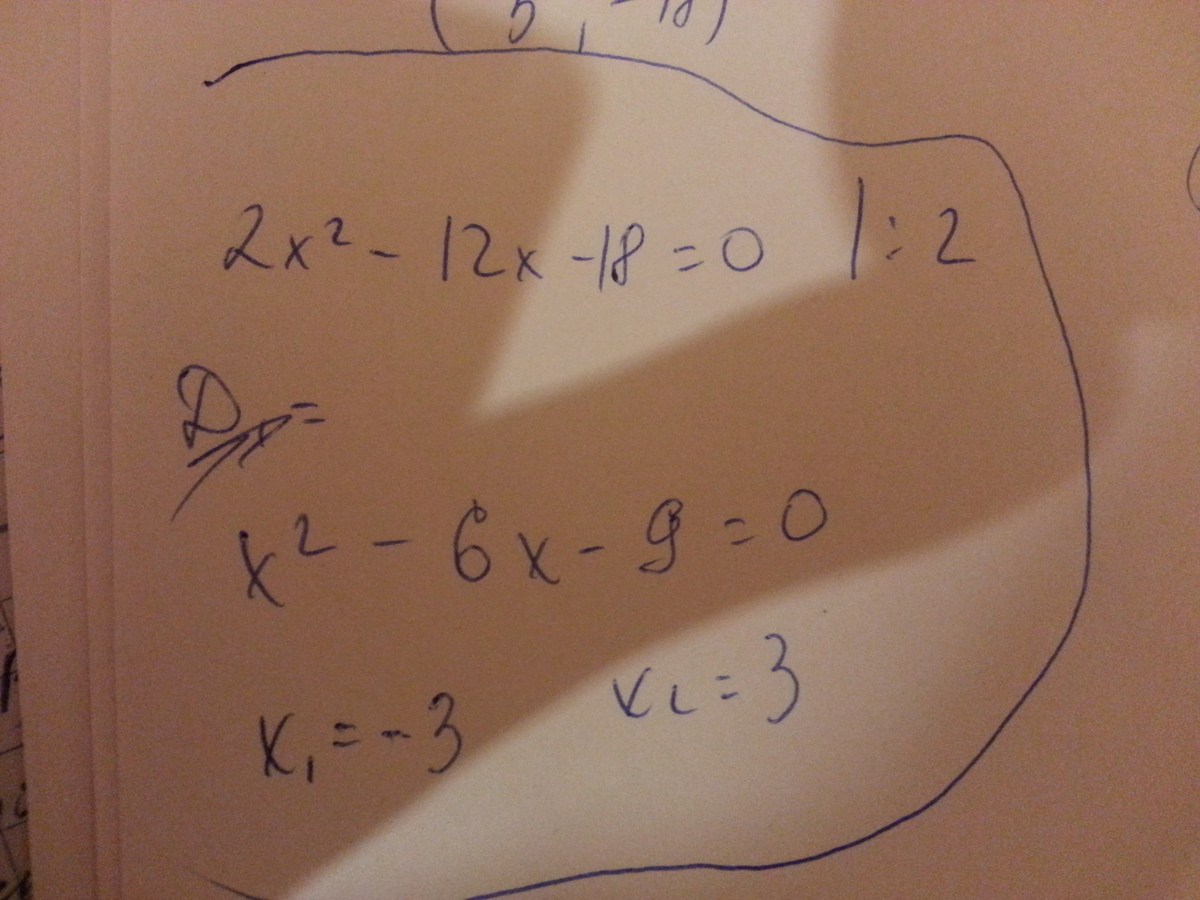 2x² - 12x - 18 = 0 | : 2
D =
x² - 6x - 9 = 0
x₁ = -3 x₂ = 3